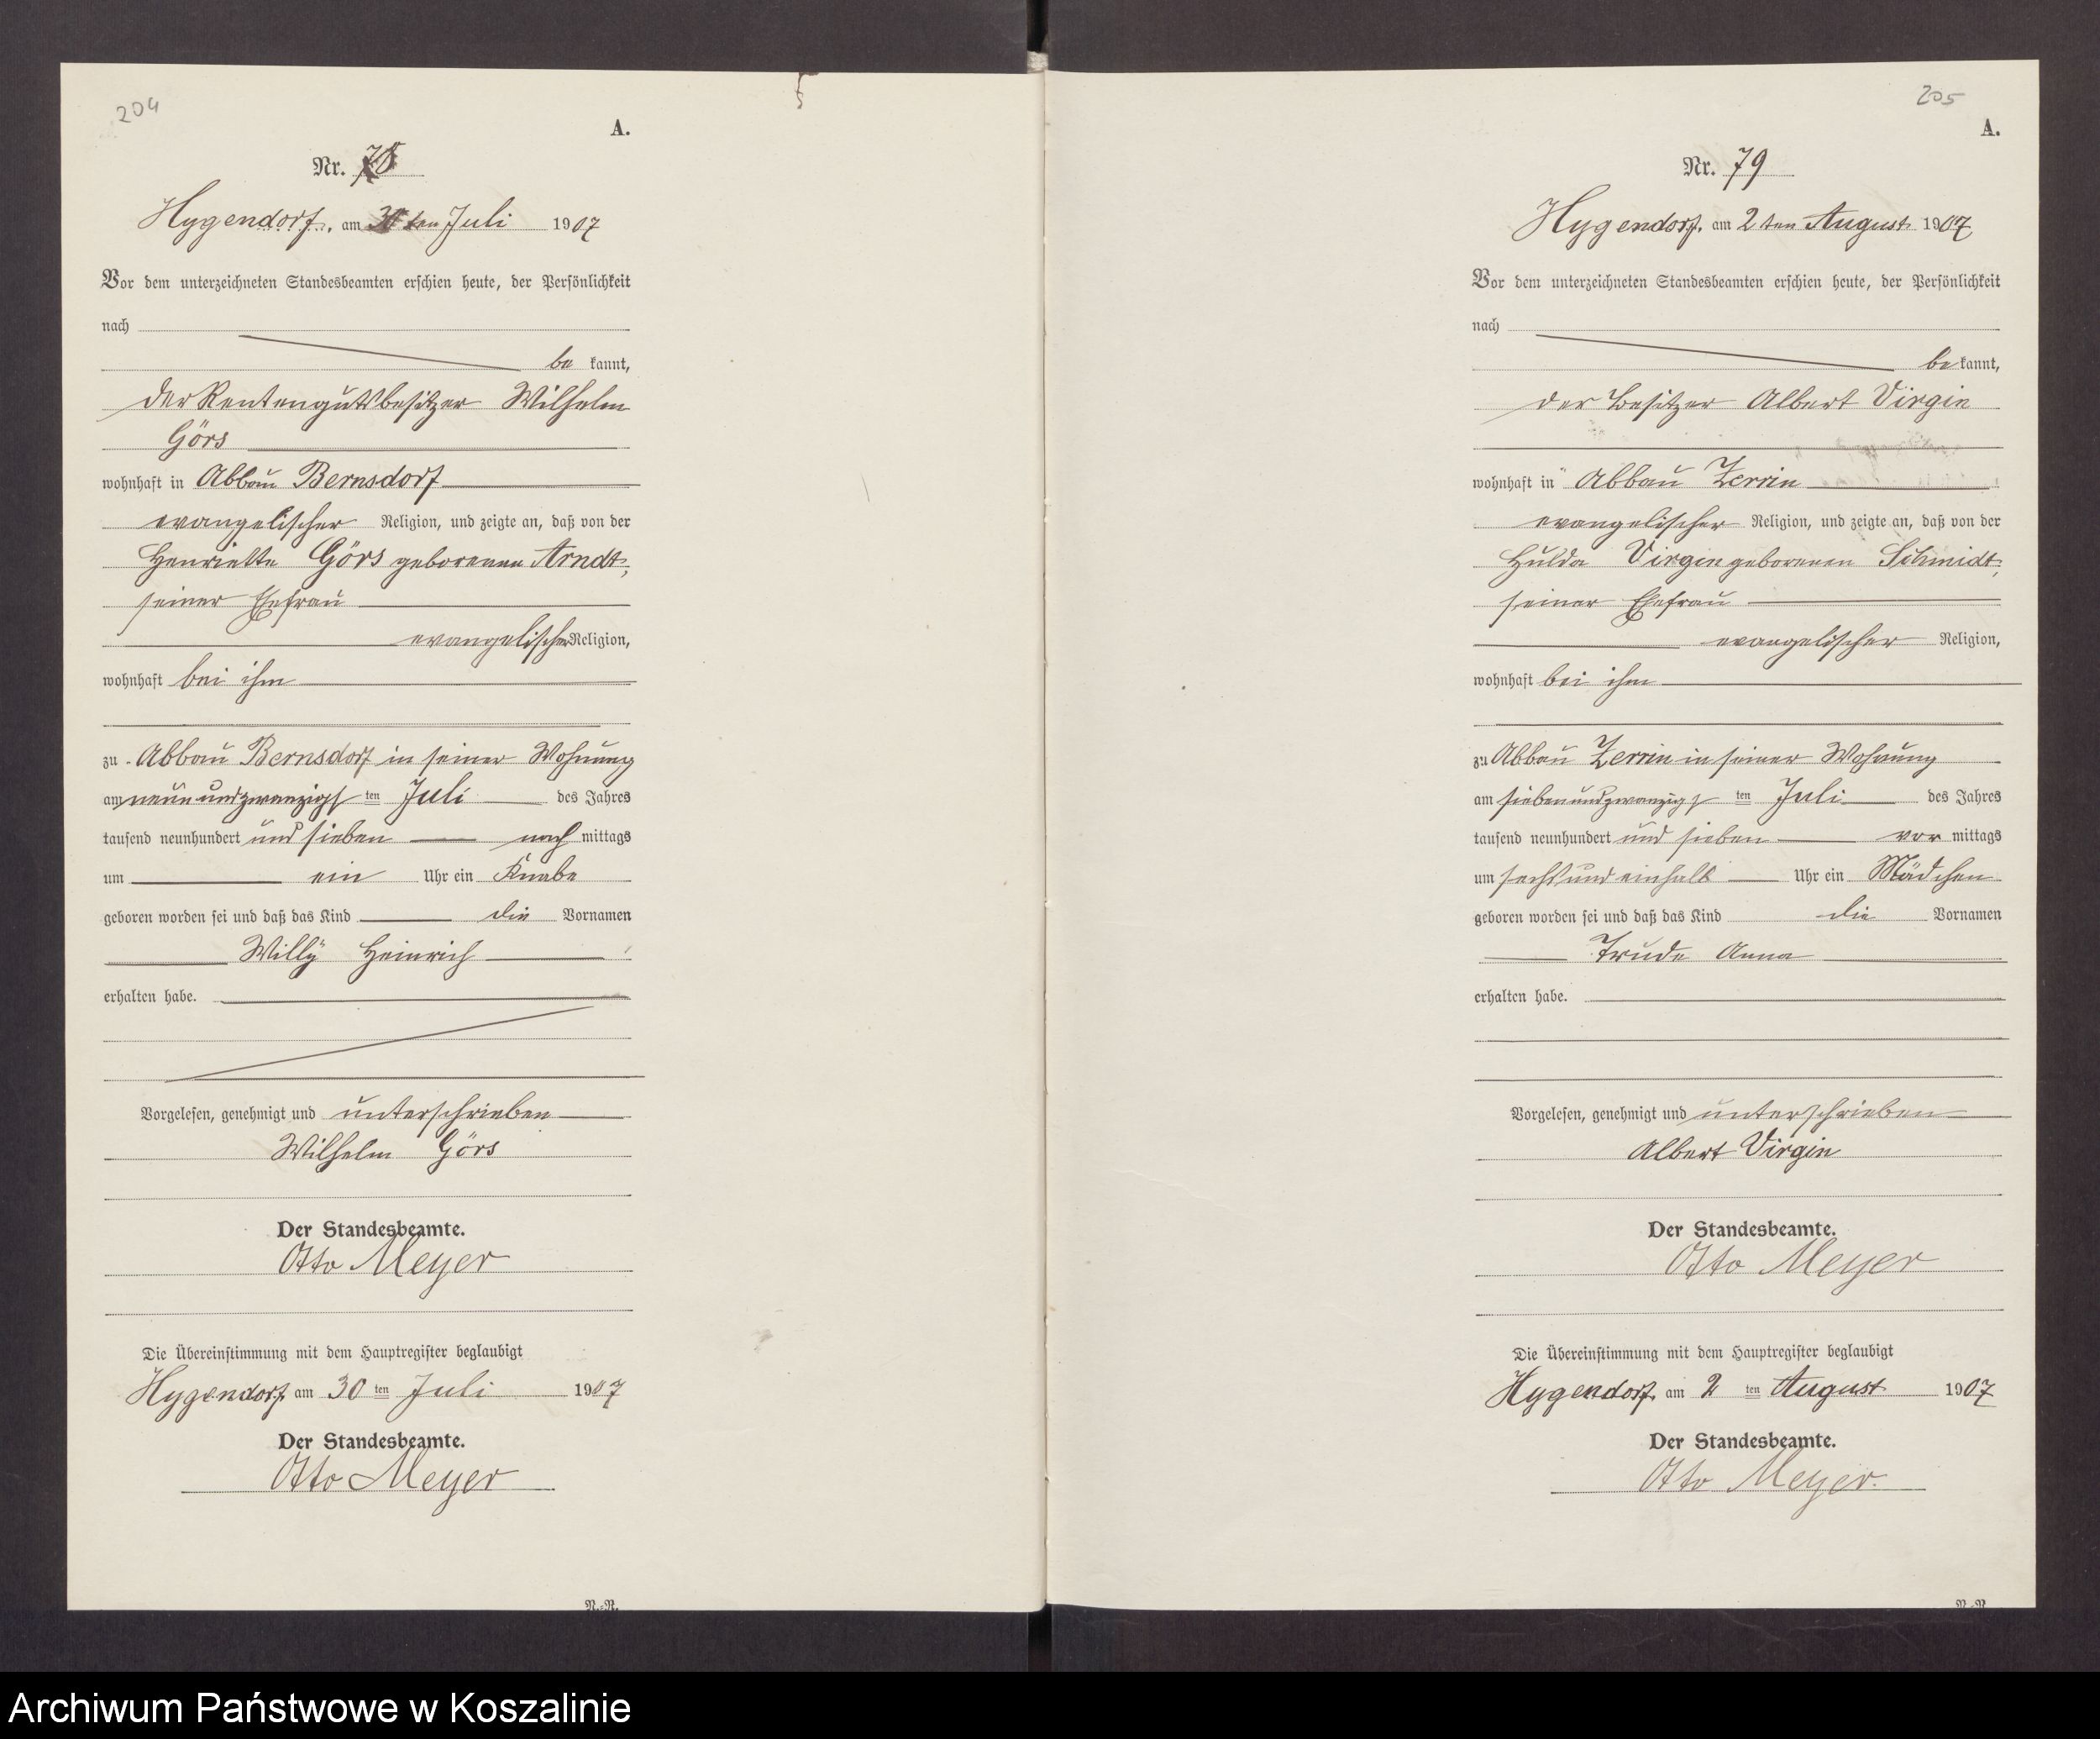 204
A.
Nr. 78
Hygendorf, am 30ten Juli 1907
Vor dem unterzeichneten Standesbeamten erschien heute, der Persönlichkeit
nach
be kannt,
der Rentengutsbesitzer Wilhelm
Görs
wohnhaft in Abbau Bernsdorf
evangelischer Religion, und zeigte an, daß von der
Henriette Görs geborenen Arndt,
seiner Ehefrau
evangelischer Religion,
wohnhaft bei ihm
zu Abbau Bernsdorf in seiner Wohnung
am neunundzwanzigs ten Juli des Jahres
tausend neunhundert und sieben nach mittags
um ein Uhr ein Knabe
geboren worden sei und daß das Kind die Vornamen
Willÿ Heinrich
erhalten habe.
Vorgelesen, genehmigt und unterschrieben
Wilhelm Görs
Der Standesbeamte.
Otto Meyer
Die Übereinstimmung mit dem Hauptregister beglaubigt
Hygendorf, am 30 ten Juli 1907
Der Standesbeamte.
Otto Meyer
N.-N.
205
A.
Nr. 79
Hygendorf, am 2ten August 1907
Vor dem unterzeichneten Standesbeamten erschien heute, der Persönlichkeit
nach
be kannt,
der Besitzer Albert Virgin
wohnhaft in Abbau Zerrin
evangelischer Religion, und zeigte an, daß von der
Hulda Virgin geborenen Schmidt,
seiner Ehefrau
evangelischer Religion,
wohnhaft bei ihm
zu Abbau Zerrin in seiner Wohnung
am siebenundzwanzigs ten Juli des Jahres
tausend neunhundert und sieben vor mittags
um sechs und einhalb Uhr ein Mädchen
geboren worden sei und daß das Kind die Vornamen
Trude Anna
erhalten habe.
Vorgelesen, genehmigt und unterschrieben
Albert Virgin
Der Standesbeamte.
Otto Meyer
Die Übereinstimmung mit dem Hauptregister beglaubigt
Hygendorf, am 2 ten August 1907
Der Standesbeamte.
Otto Meyer.
Archiwum Państwowe w Koszalinie